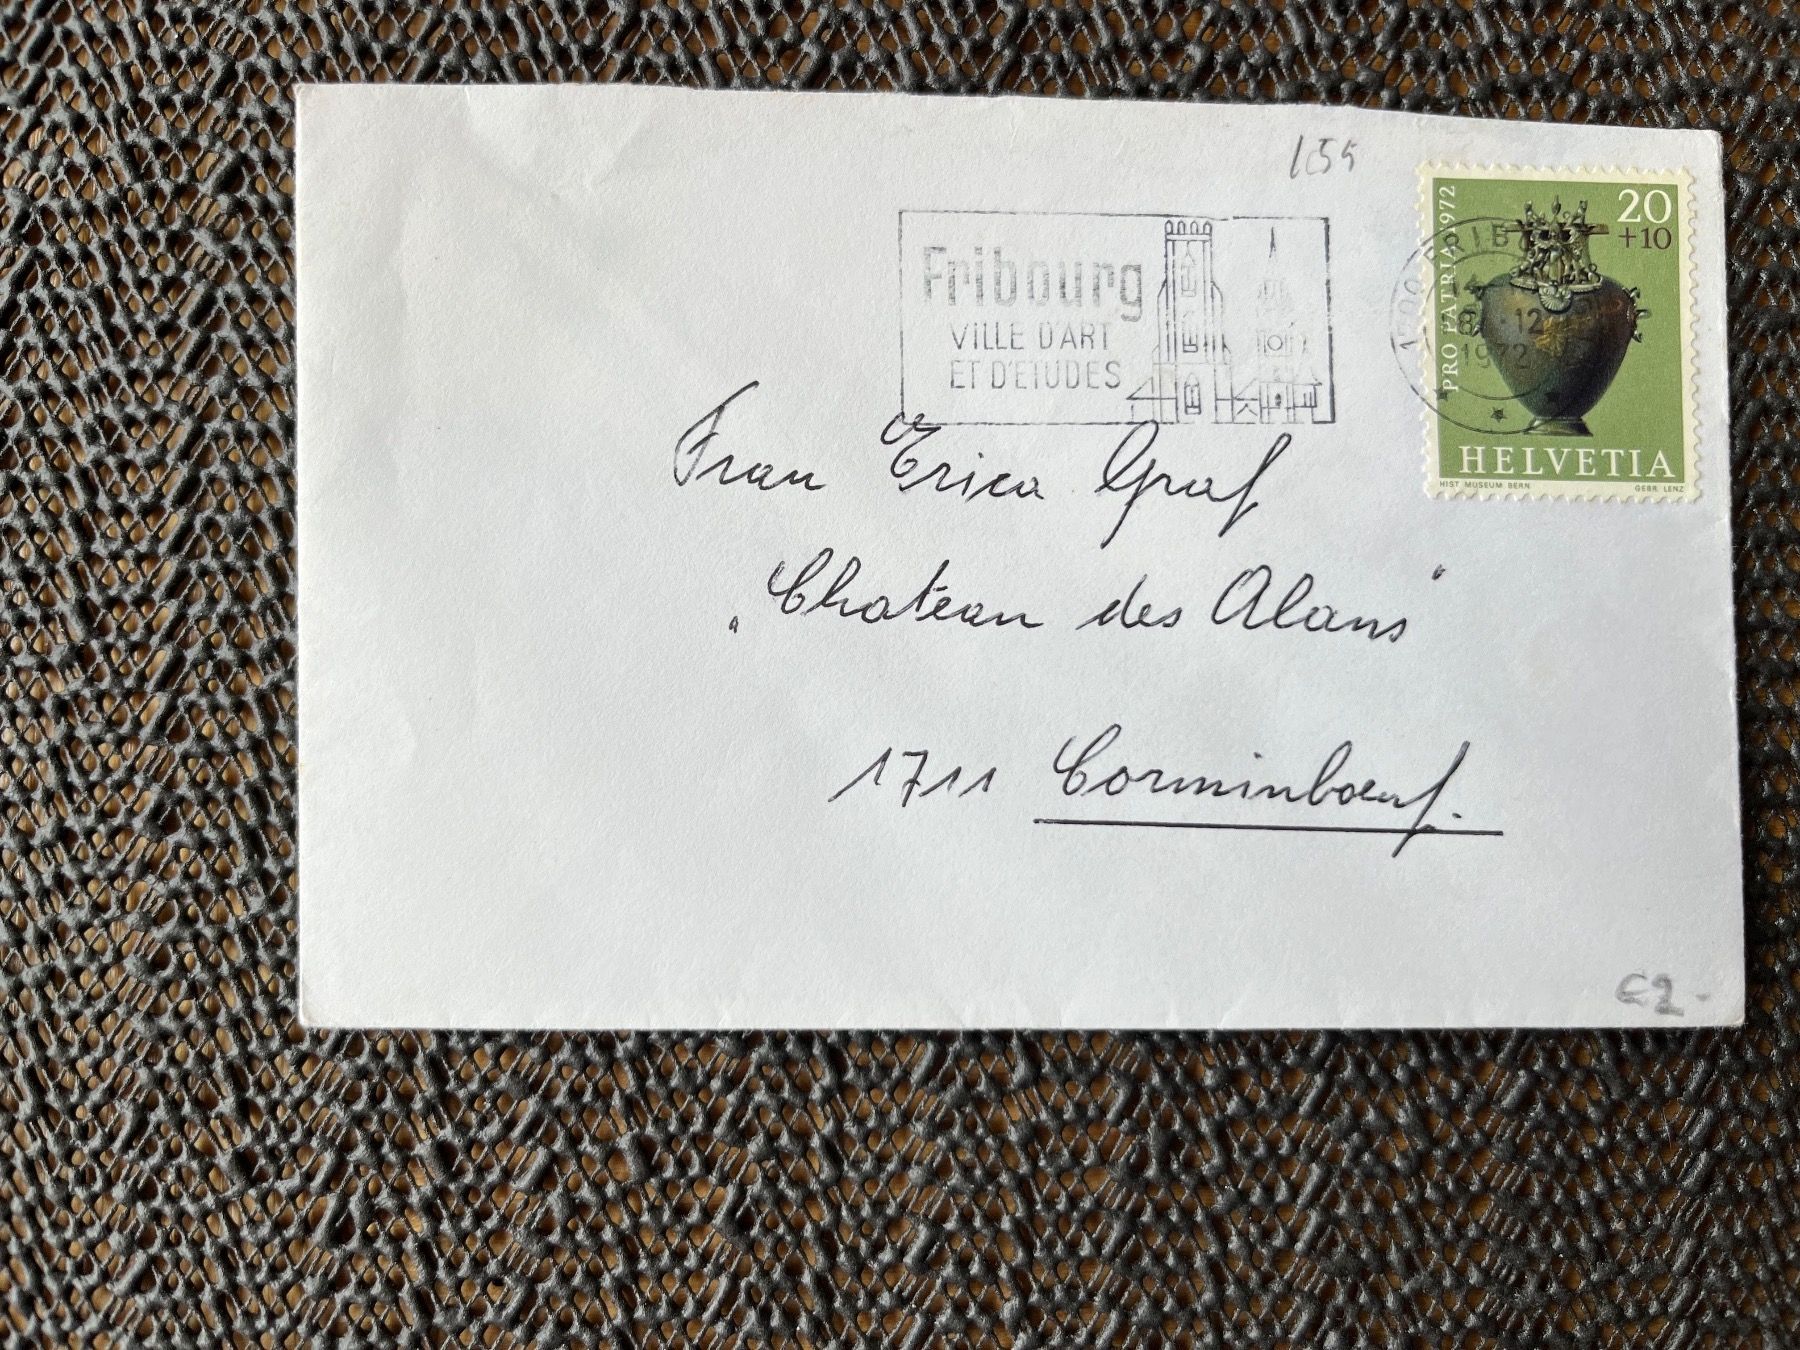 155
Fribourg
VILLE D'ART
ET D'ETUDES
1700 FRIBO
14
8 . 12
1972
20
+10
PRO PATRIA 1972
HELVETIA
HIST MUSEUM BERN
GEBR. LENZ
Frau Erica Graf
„Chateau des Alans"
1711 Corminbœuf.
€2-